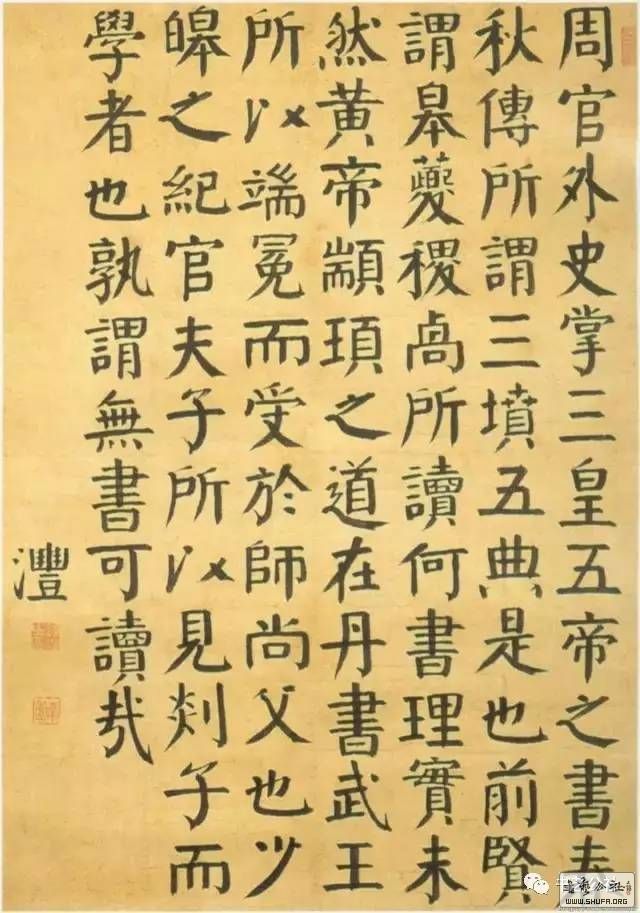 周官外史掌三皇五帝之書春
秋傳所謂三墳五典是也前賢
謂皋夔稷卨所讀何書理實未
然黃帝顓頊之道在丹書武王
所以端冕而受於師尚父也少
皞之紀官夫子所以見剡子而
學者也孰謂無書可讀哉
灃
WWW.SHUFA.ORG